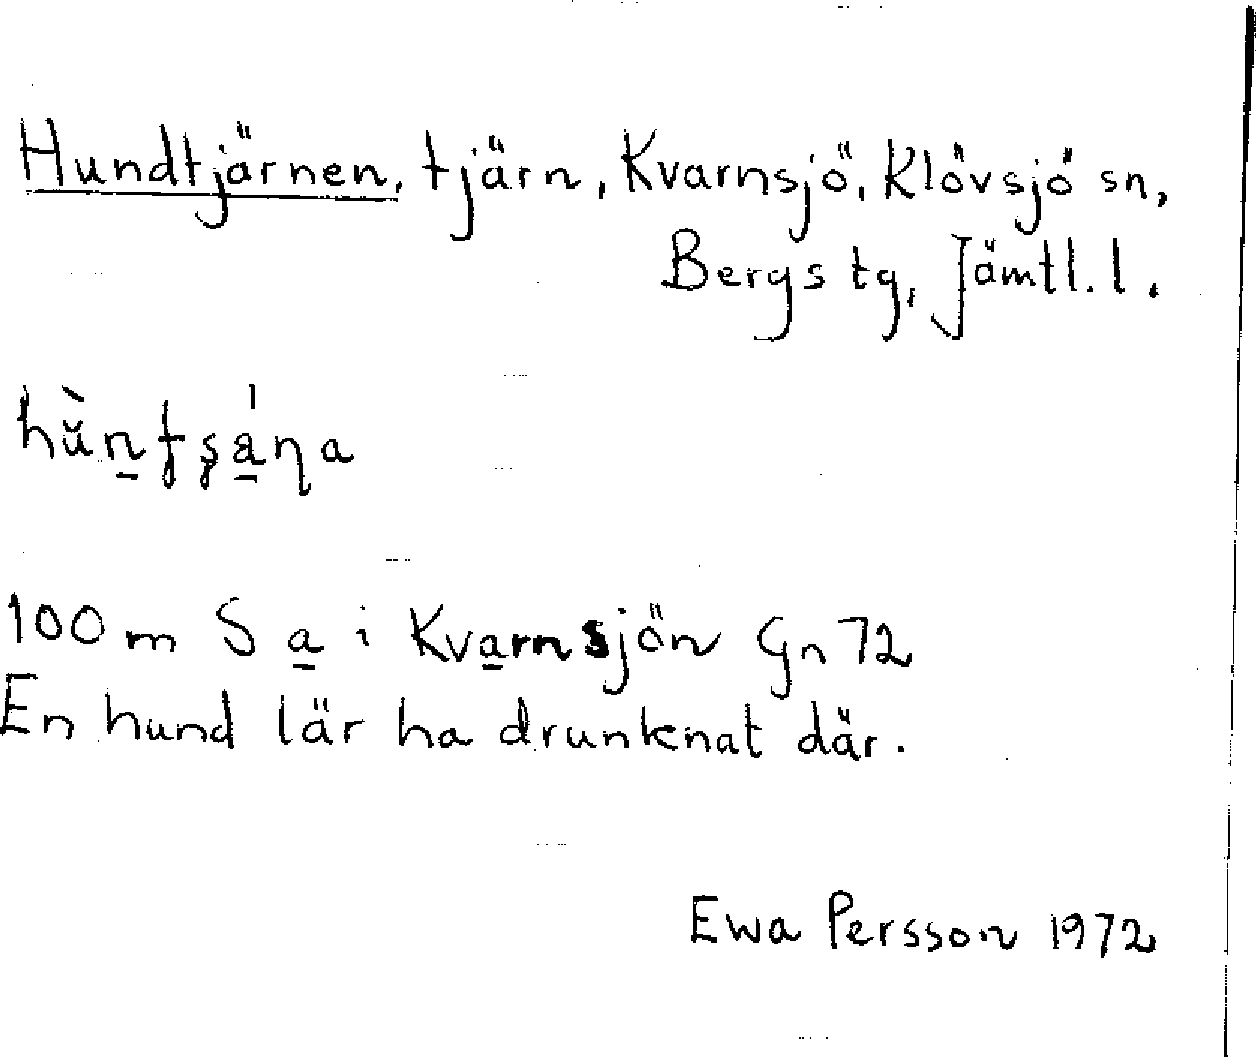 Hundtjärnen, tjärn, Kvarnsjö, Klövsjö sn,
Bergs tg, Jämtl. l.
100 m S a̲ i Kva̲rnsjön Gn 72
En hund lär ha drunknat där.
Ewa Persson 1972